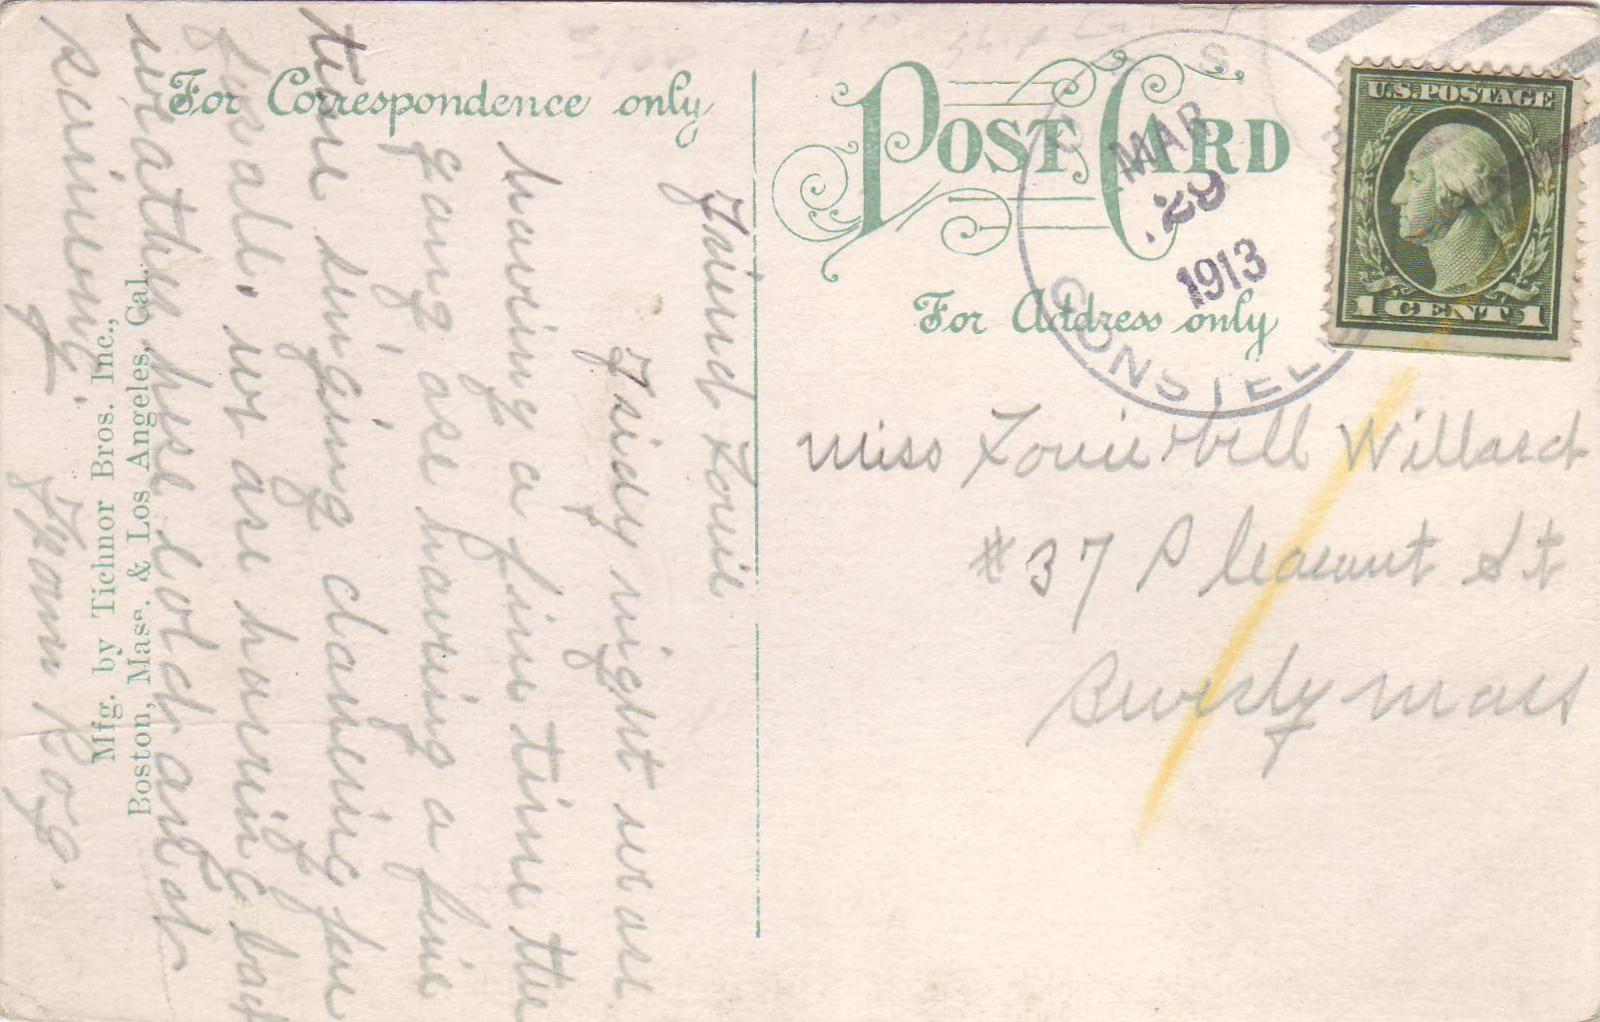 For Correspondence only
POST CARD
For Address only
U.S. POSTAGE
1 CENT 1
U. S. S.
MAR
29
1913
CONSTELL
Miss Louie bell Willard
# 37 Pleasant St
Beverly Mass
Friend Louie
Friday night we are
having a fine time the
gang are having a fine
time singing dancing fun
for all. we are having bad
weather here cold and at
From Rog.
Mfg. by Tichnor Bros. Inc.,
Boston, Mass. & Los Angeles, Cal.